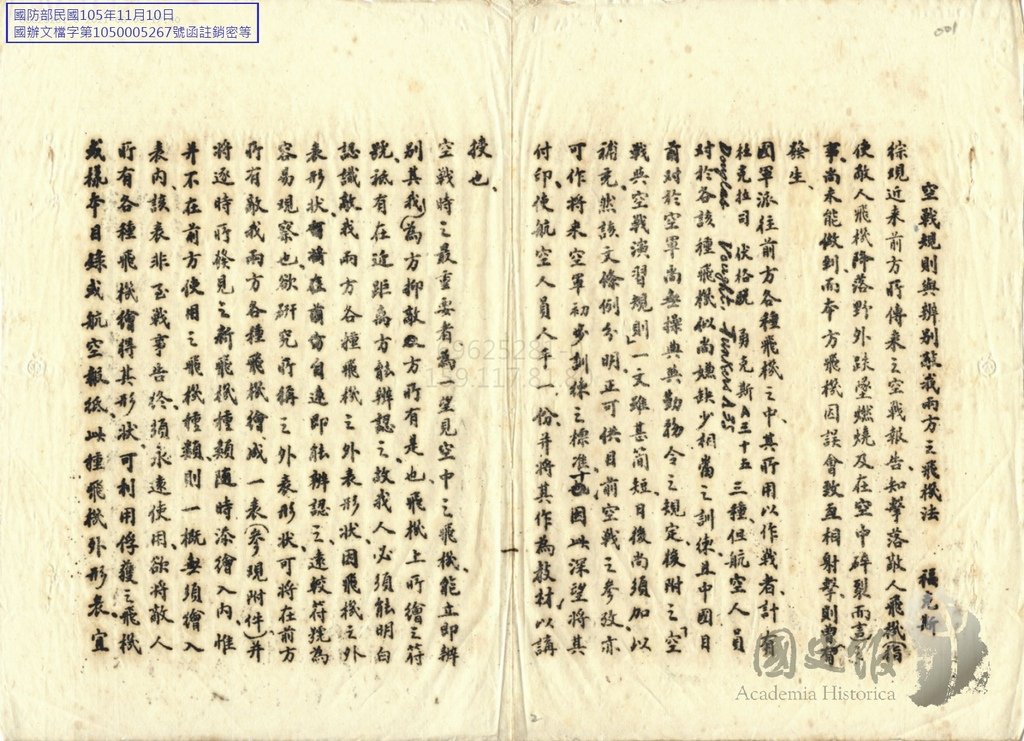 國防部民國105年11月10日
國辦文檔字第1050005267號函註銷密等
001
空戰規則與辦別敵我兩方之飛機法 福克斯
綜观近来前方所傳来之空戰報告、知擊落敵人飛機(指
使敵人飛機降落野外跌墮燃燒及在空中碎裂而言)
事、尚未能做到、而本方飛機因誤會致互相射擊、則曾有
發生、
國軍派往前方各種飛機之中、其所用以作戰者、計有
杜克拉司 伏格號 勇克斯A三十五 三種、但航空人員
Douglas Vought, Junkers A 35
對於各該種飛機似尚嫌缺少相當之訓練、且中國目
前對於空軍尚無操典與勤務令之規定、後附之「空
戰與空戰演習規則」一文雖甚簡短、日後尚須加以
補充、然該文條例分明、正可供目前空戰之參攷、亦
可作將来空軍初步訓練之標準也、因此深望將其
付印、使航空人員人手一份、并將其作為教材、以講
授也、
空戰時之最重要者、為一望見空中之飛機、能立即辦
别其我(為方抑敵方所有是也、飛機上所繪之符
號、祗有在近距离方能辦認之、故我人必須能明白
認識敵我兩方各種飛機之外表形狀、因飛機之外
表形狀、在自遠即能辦認之、遠較符號為
容易現察也、欲研究所稱之外表形狀、可將在前方
所有敵我兩方各種飛機繪成一表(參現附件)、并
將逐時所發見之新飛機種類、隨時添繪入內、惟
并不在前方使用之飛機種類、則一概無須繪入
表內、該表非至戰事告終、須永遠使用、欲將敵人
所有各種飛機繪得其形狀、可利用俘獲之飛機
或樣本目錄或航空報紙、此種飛機外形表、宜
一
2
國史館
Academia Historica